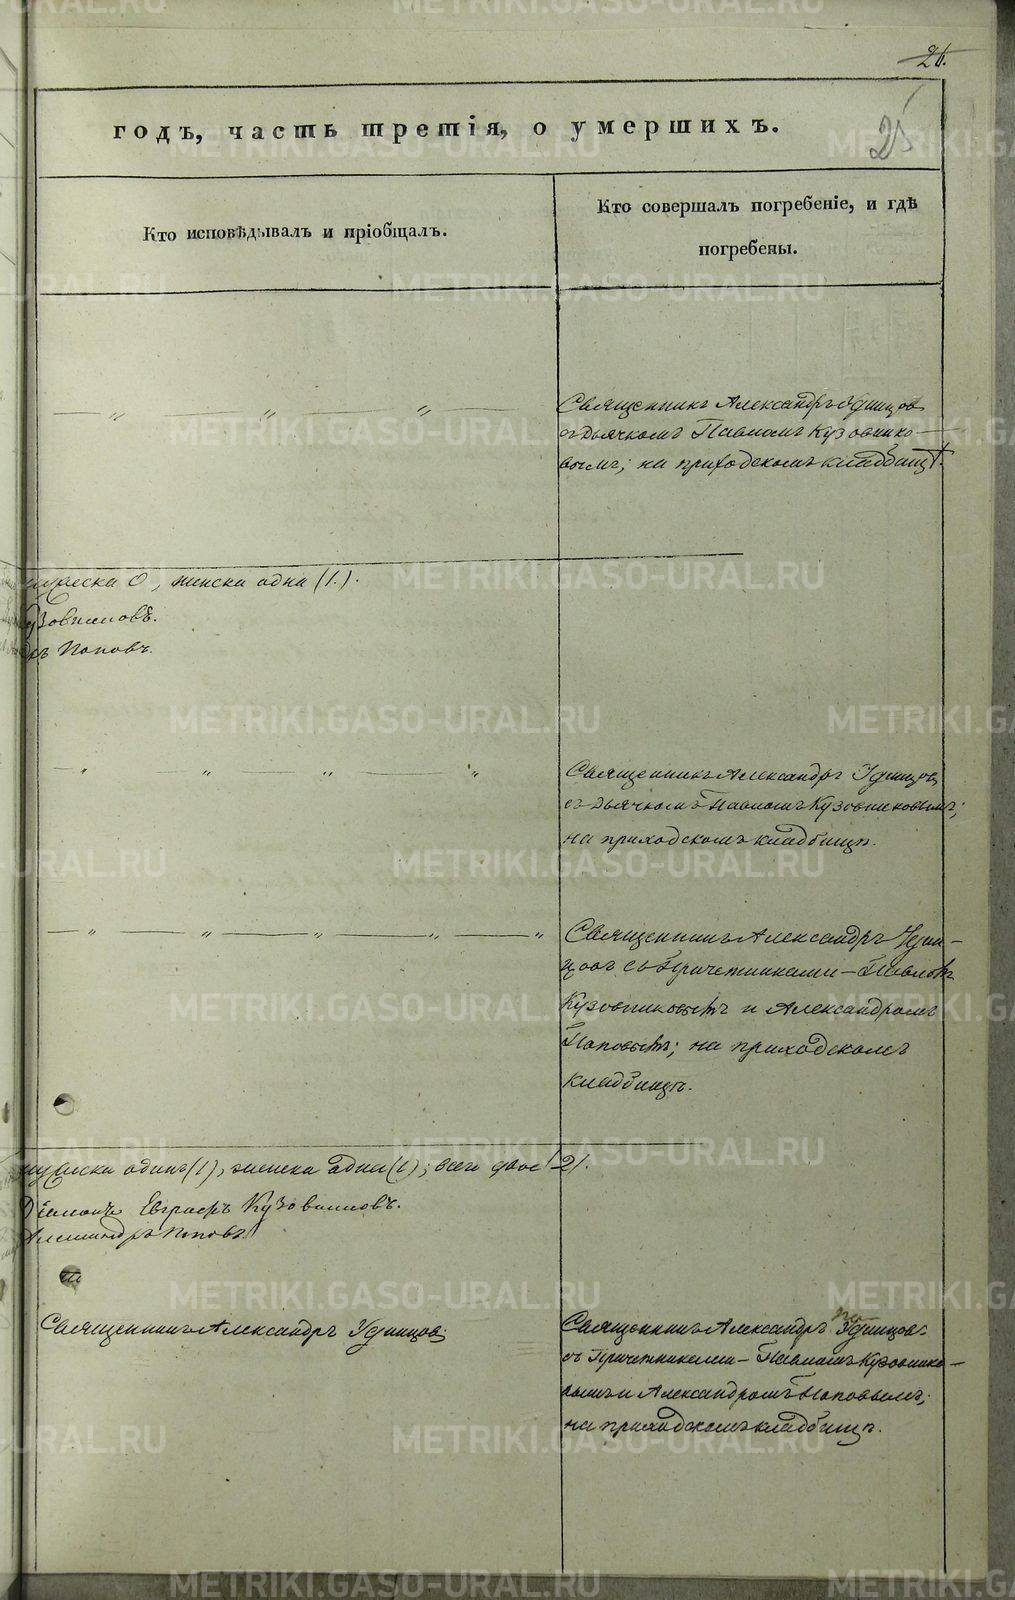 26.
25
годъ, часть третія, о умершихъ.
Кто исповѣдывалъ и пріобщалъ.
Кто совершалъ погребеніе, и гдѣ
погребены.
Священникъ Александръ Удинцов
съ Дьячкомъ Павломъ Кузовнико-
вымъ; на приходскомъ кладбищѣ.
мужеска 0, женска одна (1).
Кузовниковъ.
Поповъ.
Священникъ Александръ Удинцовъ
съ Дьячкомъ Павломъ Кузовниковымъ;
на приходскомъ кладбищѣ.
Священникъ Александръ Удин-
цовъ съ Причетниками - Павломъ
Кузовниковымъ и Александромъ
Поповымъ; на приходскомъ
кладбищѣ.
мужеска одинъ (1), женска одна (1); всего двое (2).
Діаконъ Евграфъ Кузовниковъ.
Александръ Поповъ.
Священникъ Александръ Удинцовъ
Священникъ Александръ Удинцовъ
съ Причетниками - Павломъ Кузовнико-
вымъ и Александромъ Поповымъ;
на приходскомъ кладбищѣ.
METRIKI.GASO-URAL.RU